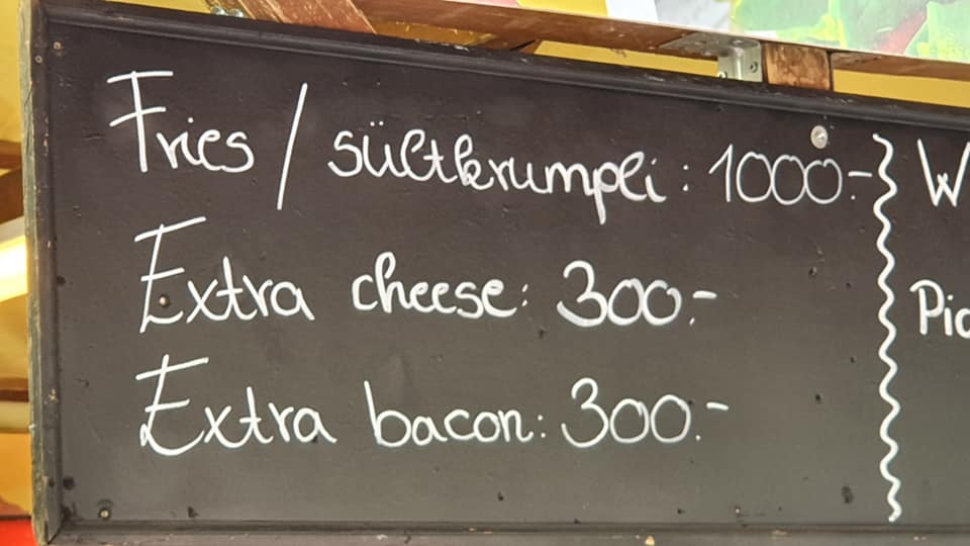 Fries / sültkrumpli : 1000.-
Extra cheese: 300.-
Extra bacon: 300.-